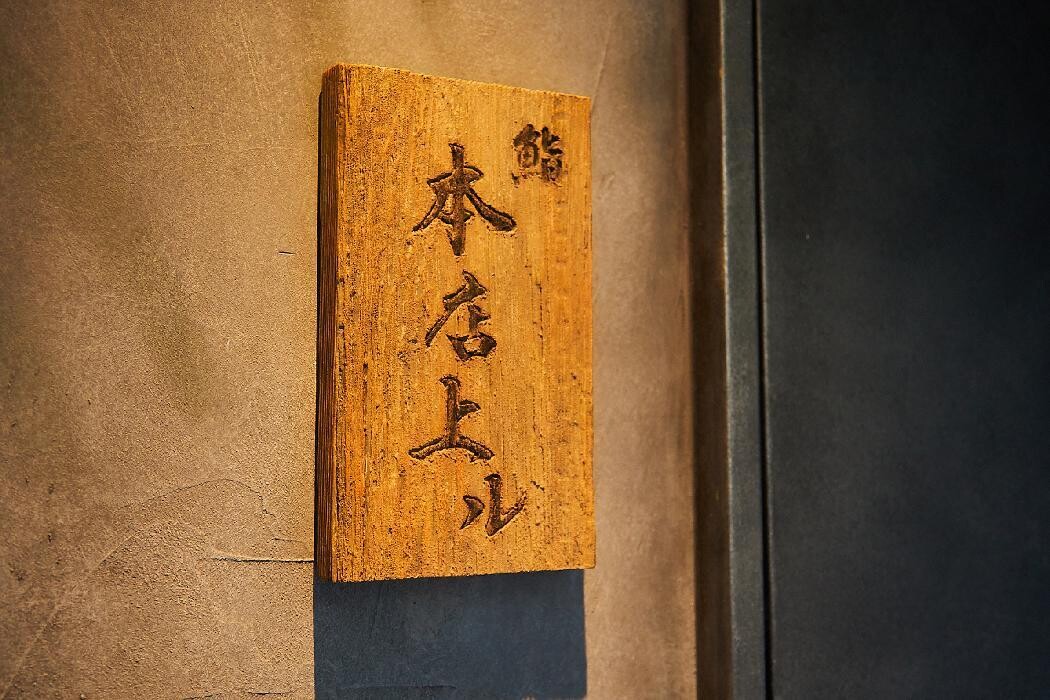 鮨
本店上ル